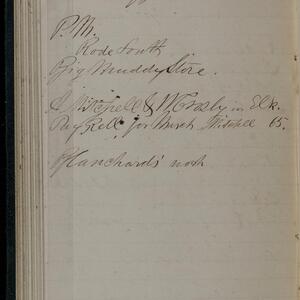 P.M.
Rode South
Big Muddy Store.
J Mitchell & W Crosby in Elk.
Pay Rell for Mitchell 65.
Blanchards north